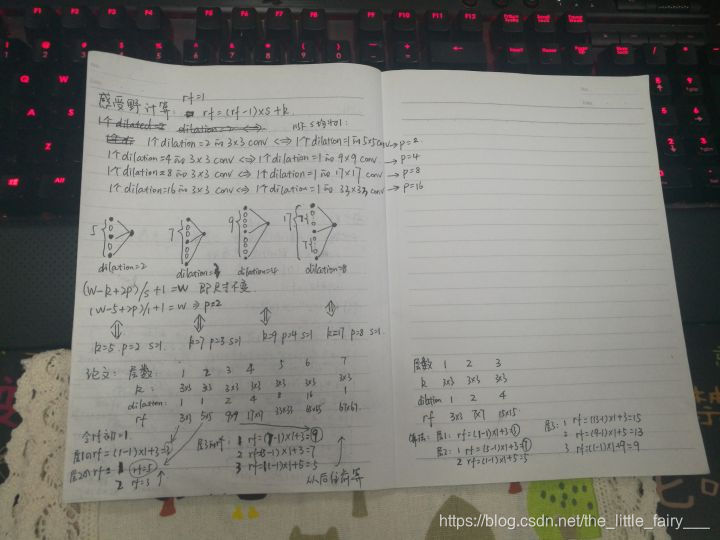 感受野计算: rf=1
rf=(rf-1)×s+k
1个dilation=2的 3×3 conv <=> 1个dilation=1的5×5conv→p=2
1个dilation=4的 3×3 conv <=> 1个dilation=1的 9×9 conv → p=4
1个dilation=8的 3×3 conv <=> 1个dilation=1的 17×17 conv → p=8
1个dilation=16的 3×3 conv <=> 1个dilation=1的 33×33 conv → p=16
5 7 9 17
dilation=2 dilation=3 dilation=4 dilation=8
(W-k+2p)/s+1=W 即尺寸不变
(W-5+2p)/1+1=W => p=2
k=5 p=2 s=1 k=7 p=3 s=1 k=9 p=4 s=1 k=17 p=8 s=1
论文: 层数: 1 2 3 4 5 6 7
k: 3×3 3×3 3×3 3×3 3×3 3×3 3×3
dilation: 1 1 2 4 8 16 1
rf 3×3 5×5 9×9 17×17 33×33 65×65 67×67
令rf初=1
层1的rf=(1-1)×1+3=3
层2的rf= 1 rf=5
2 rf=3
层3的rf: 1 rf=(7-1)×1+3=9
2 rf=(5-1)×1+3=7
3 rf=(1-1)×1+5=5
从后往前算
层数 1 2 3
k 3×3 3×3 3×3
dilation 1 2 4
rf 3×3 7×7 15×15
层1: rf=(1-1)×1+3=3
层2: 1 rf=(5-1)×1+3=7
2 rf=(1-1)×1+5=5
层3: 1 rf=(13-1)×1+3=15
2 rf=(9-1)×1+5=13
3 rf=(1-1)×1+9=9
https://blog.csdn.net/the_little_fairy___